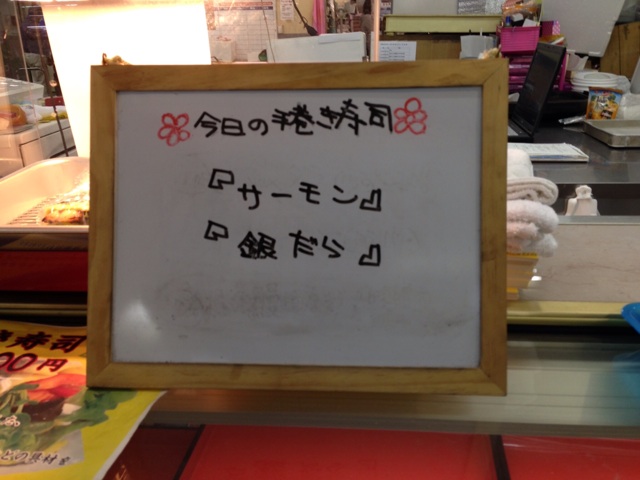 今日の手巻き寿司
『サーモン』
『銀だら』
き寿司
00円